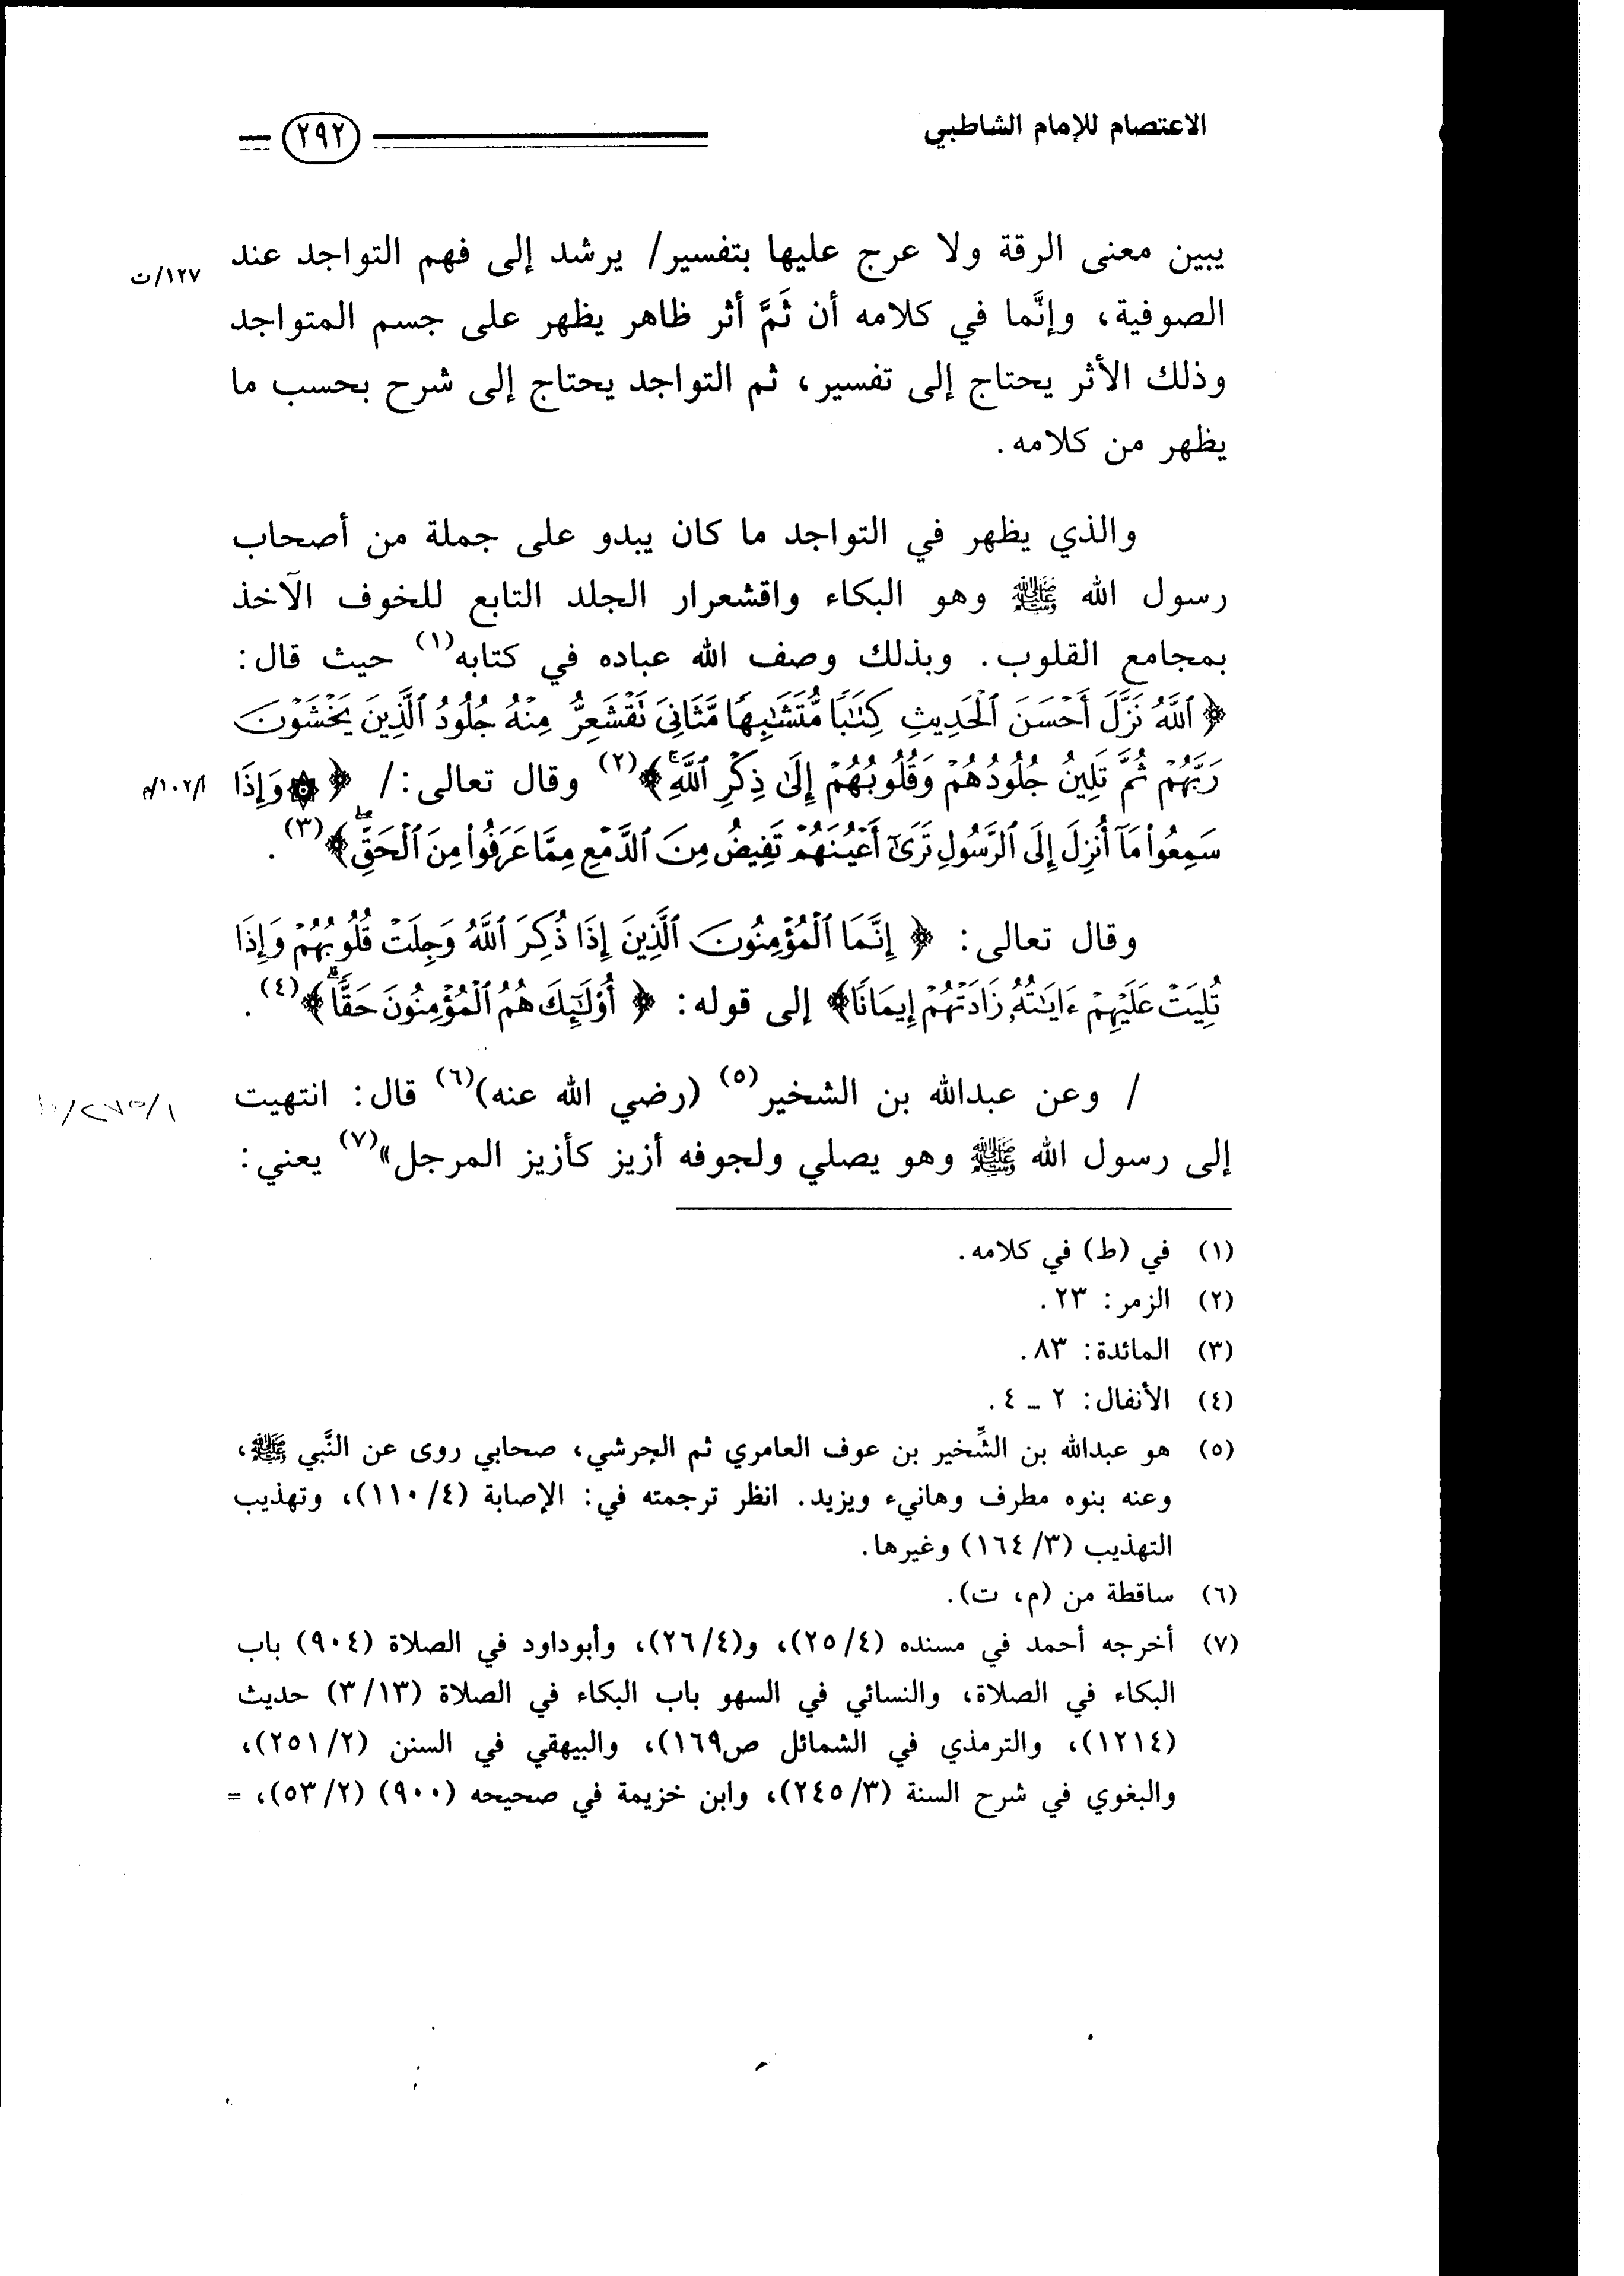 الاعتصام للإمام الشاطبي
٢٩٢
يبين معنى الرقة ولا عرج عليها بتفسير/ يرشد إلى فهم التواجد عند
١٢٧/ت
الصوفية، وإنَّما في كلامه أن ثَمَّ أثر ظاهر يظهر على جسم المتواجد
وذلك الأثر يحتاج إلى تفسير، ثم التواجد يحتاج إلى شرح بحسب ما
يظهر من كلامه.
والذي يظهر في التواجد ما كان يبدو على جملة من أصحاب
رسول الله ﷺ وهو البكاء واقشعرار الجلد التابع للخوف الآخذ
بمجامع القلوب. وبذلك وصف الله عباده في كتابه(١) حيث قال:
﴿ ٱللَّهُ نَزَّلَ أَحۡسَنَ ٱلۡحَدِيثِ كِتَٰبٗا مُّتَشَٰبِهٗا مَّثَانِيَ تَقۡشَعِرُّ مِنۡهُ جُلُودُ ٱلَّذِينَ يَخۡشَوۡنَ
رَبَّهُمۡ ثُمَّ تَلِينُ جُلُودُهُمۡ وَقُلُوبُهُمۡ إِلَىٰ ذِكۡرِ ٱللَّهِۚ ﴾(٢) وقال تعالى:/ ﴿ ۞ وَإِذَا
١٠٢/أ/م
سَمِعُواْ مَآ أُنزِلَ إِلَى ٱلرَّسُولِ تَرَىٰٓ أَعۡيُنَهُمۡ تَفِيضُ مِنَ ٱلدَّمۡعِ مِمَّا عَرَفُواْ مِنَ ٱلۡحَقِّۖ ﴾(٣).
وقال تعالى: ﴿ إِنَّمَا ٱلۡمُؤۡمِنُونَ ٱلَّذِينَ إِذَا ذُكِرَ ٱللَّهُ وَجِلَتۡ قُلُوبُهُمۡ وَإِذَا
تُلِيَتۡ عَلَيۡهِمۡ ءَايَٰتُهُۥ زَادَتۡهُمۡ إِيمَٰنٗا﴾ إلى قوله: ﴿ أُوْلَٰٓئِكَ هُمُ ٱلۡمُؤۡمِنُونَ حَقّٗاۚ ﴾(٤).
/ وعن عبدالله بن الشخير(٥) (رضي الله عنه)(٦) قال: انتهيت
إلى رسول الله ﷺ وهو يصلي ولجوفه أزيز كأزيز المرجل»(٧) يعني:
(١) في (ط) في كلامه.
(٢) الزمر: ٢٣.
(٣) المائدة: ٨٣.
(٤) الأنفال: ٢ ـ ٤.
(٥) هو عبدالله بن الشِّخير بن عوف العامري ثم الجرشي، صحابي روى عن النَّبي ﷺ،
وعنه بنوه مطرف وهانيء ويزيد. انظر ترجمته في: الإصابة (٤/١١٠)، وتهذيب
التهذيب (٣/١٦٤) وغيرها.
(٦) ساقطة من (م، ت).
(٧) أخرجه أحمد في مسنده (٤/٢٥)، و(٤/٢٦)، وأبوداود في الصلاة (٩٠٤) باب
البكاء في الصلاة، والنسائي في السهو باب البكاء في الصلاة (٣/١٣) حديث
(١٢١٤)، والترمذي في الشمائل ص١٦٩)، والبيهقي في السنن (٢/٢٥١)،
والبغوي في شرح السنة (٣/٢٤٥)، وابن خزيمة في صحيحه (٩٠٠) (٢/٥٣)، =